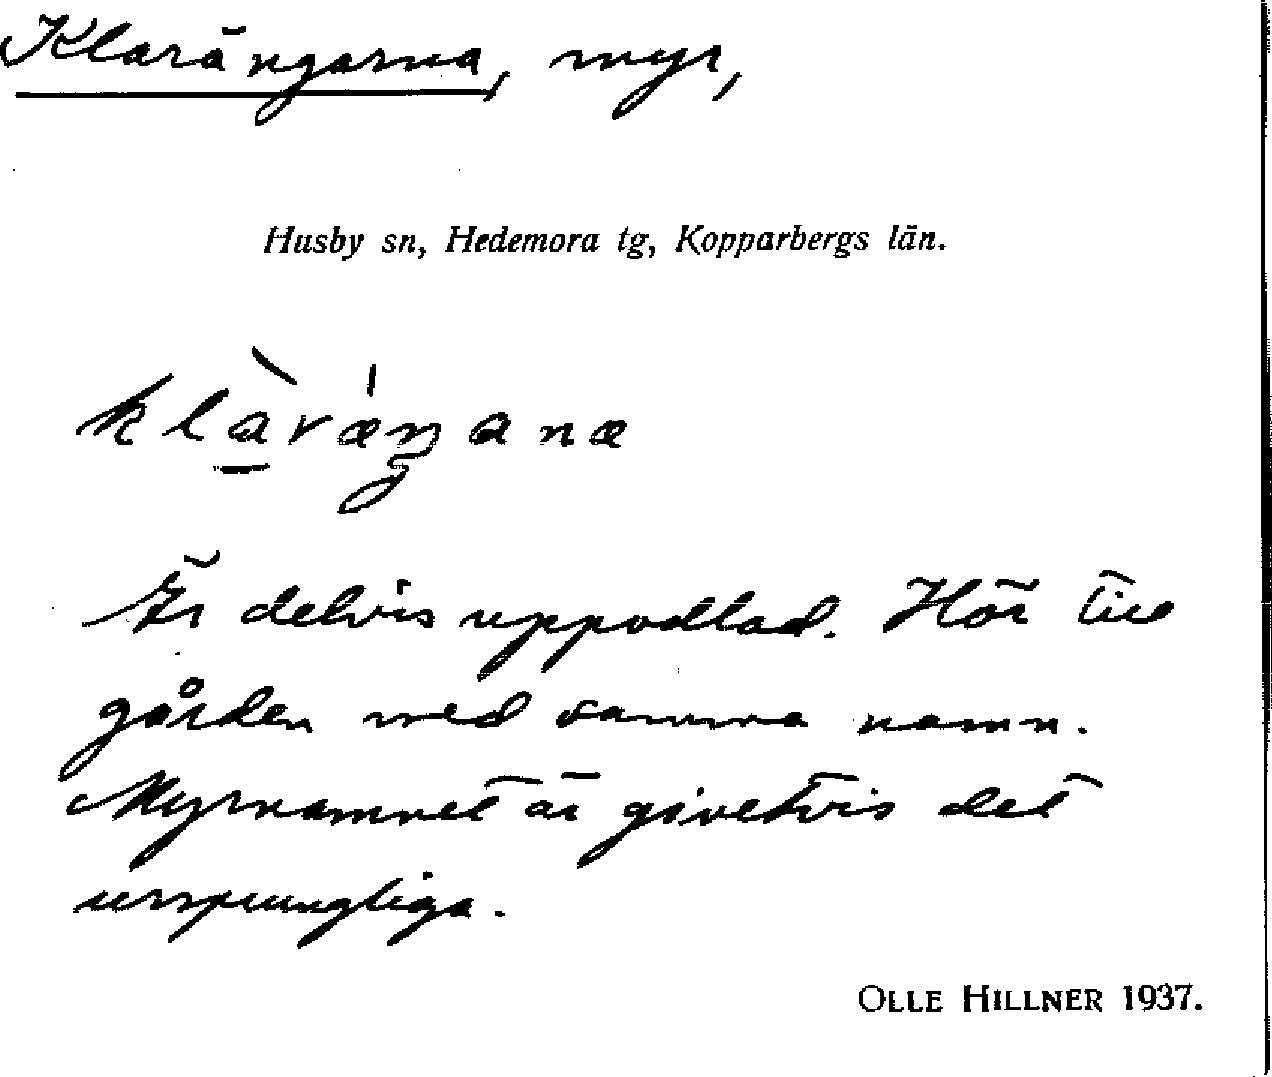 Klarängarna, myr,
Husby sn, Hedemora tg, Kopparbergs län.
Är delvis uppodlad. Hör till
gården med samma namn.
Myrnamnet är givetvis det
ursprungliga.
OLLE HILLNER 1937.